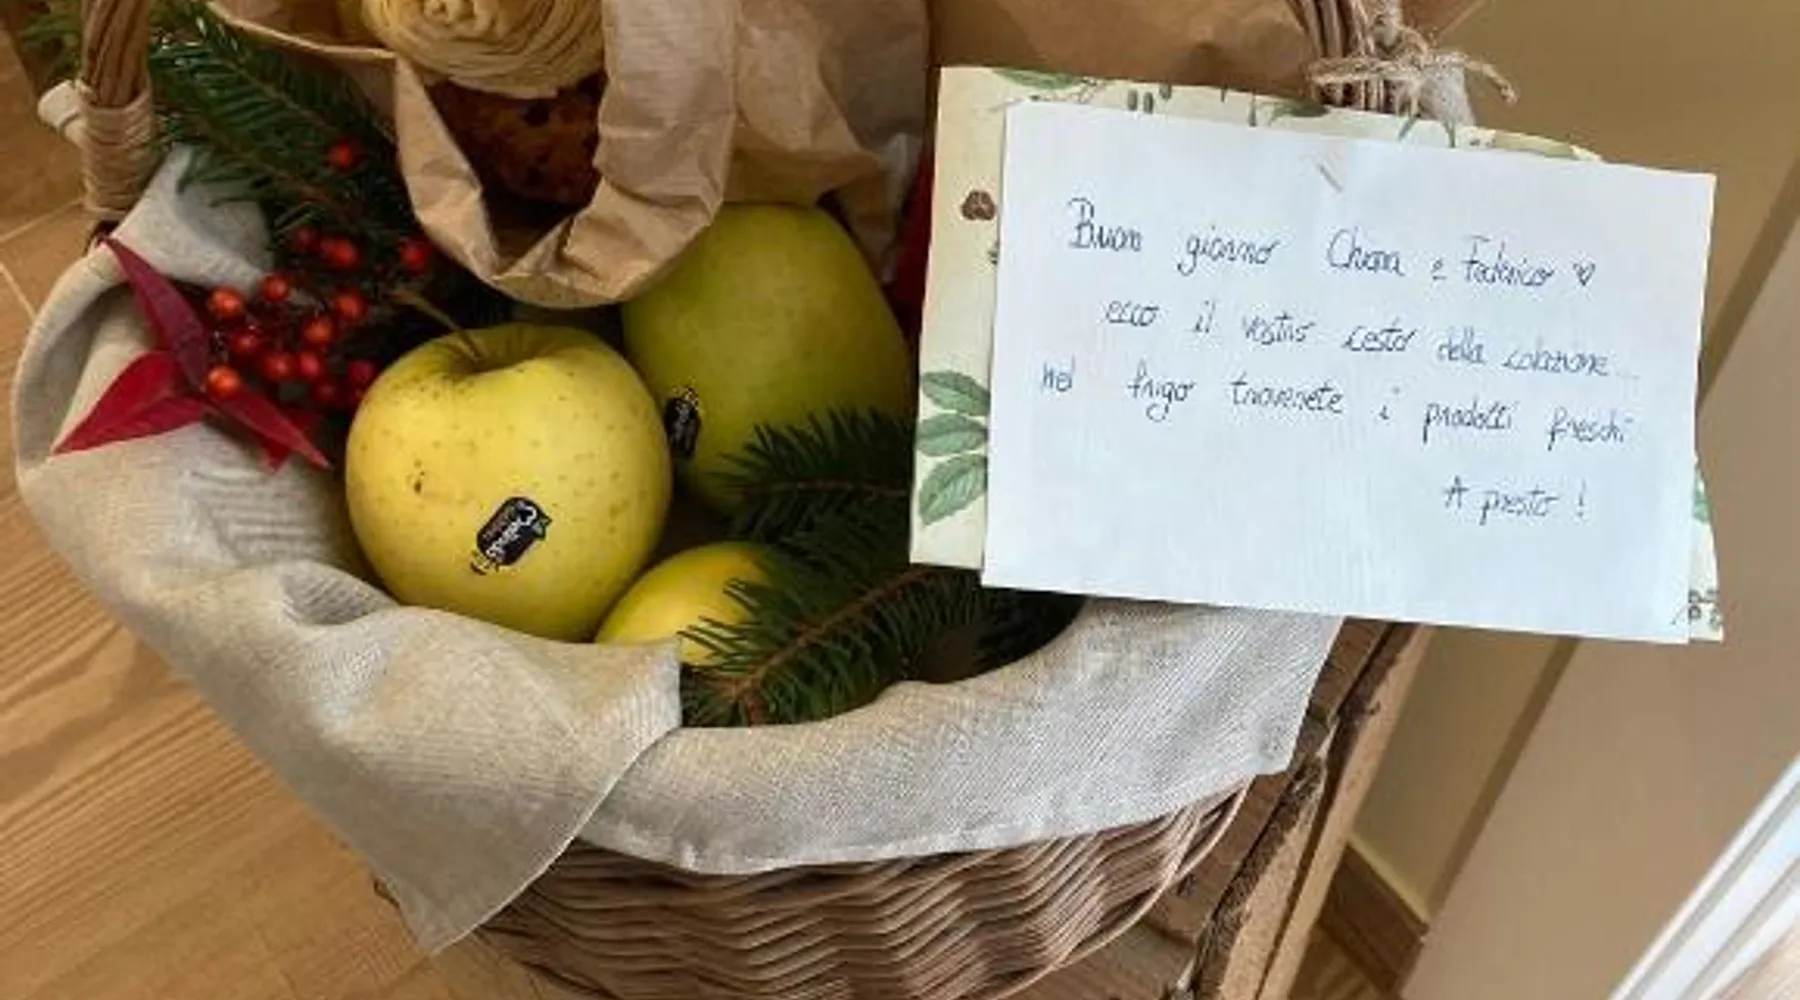 Melinda
Buon giorno Chiara e Federico ♡
ecco il vostro cesto della colazione...
nel frigo troverete i prodotti freschi
A presto !